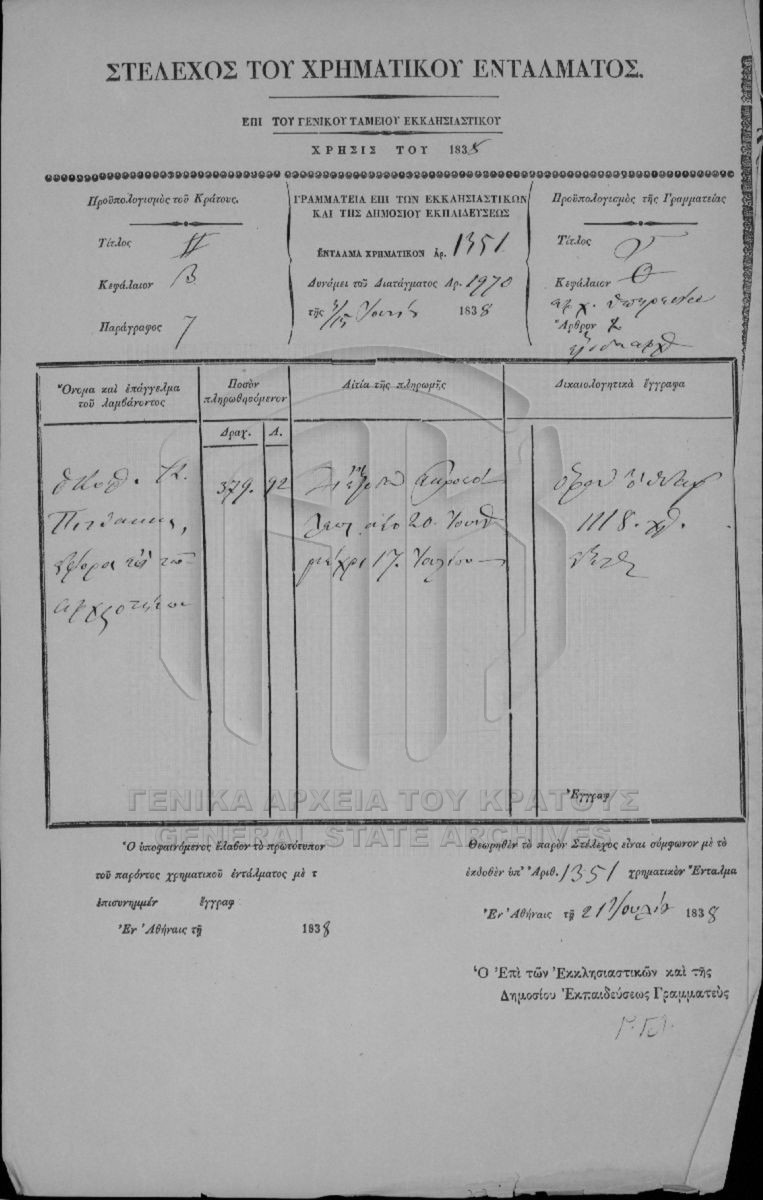 ΣΤΕΛΕΧΟΣ ΤΟΥ ΧΡΗΜΑΤΙΚΟΥ ΕΝΤΑΛΜΑΤΟΣ.
ΕΠΙ ΤΟΥ ΓΕΝΙΚΟΥ ΤΑΜΕΙΟΥ ΕΚΚΛΗΣΙΑΣΤΙΚΟΥ
ΧΡΗΣΙΣ ΤΟΥ 1838
Προϋπολογισμὸς τοῦ Κράτους.
Τίτλος
Κεφάλαιον Β
Παράγραφος 7
ΓΡΑΜΜΑΤΕΙΑ ΕΠΙ ΤΩΝ ΕΚΚΛΗΣΙΑΣΤΙΚΩΝ
ΚΑΙ ΤΗΣ ΔΗΜΟΣΙΟΥ ΕΚΠΑΙΔΕΥΣΕΩΣ
ΕΝΤΑΛΜΑ ΧΡΗΜΑΤΙΚΟΝ Ἀρ. 1351
Δυνάμει τοῦ Διατάγματος Ἀρ. 1970
τῆς 3/15 Ἰουνίου 1838
Προϋπολογισμὸς τῆς Γραμματείας
Τίτλος
Κεφάλαιον Θ
ἀρχ. ὑπηρεσία
Ἄρθρον
Ὄνομα καὶ ἐπάγγελμα
τοῦ λαμβάνοντος
Ποσὸν
πληρωθησόμενον
Δραχ. Λ.
Αἰτία τῆς πληρωμῆς
Δικαιολογητικὰ ἔγγραφα
Κ.
Πιττάκης,
ἔφορος τῶν
ἀρχαιοτήτων
379. 92
ἀπὸ 20 Ἰουνίου
μέχρι 17. Ἰουλίου
1118.
Ἔγγραφ
ΓΕΝΙΚΑ ΑΡΧΕΙΑ ΤΟΥ ΚΡΑΤΟΥΣ
GENERAL STATE ARCHIVES
Ὁ ὑποφαινόμενος ἔλαβον τὸ πρωτότυπον
τοῦ παρόντος χρηματικοῦ ἐντάλματος μὲ τ
ἐπισυνημμέν ἔγγραφ
Ἐν Ἀθήναις τῇ 1838
Θεωρηθὲν τὸ παρὸν Στέλεχος εἶναι σύμφωνον μὲ τὸ
ἐκδοθὲν ὑπ' Ἀριθ. 1351 χρηματικὸν Ἔνταλμα
Ἐν Ἀθήναις τῇ 21 Ἰουλίου 1838
Ὁ Ἐπὶ τῶν Ἐκκλησιαστικῶν καὶ τῆς
Δημοσίου Ἐκπαιδεύσεως Γραμματεὺς